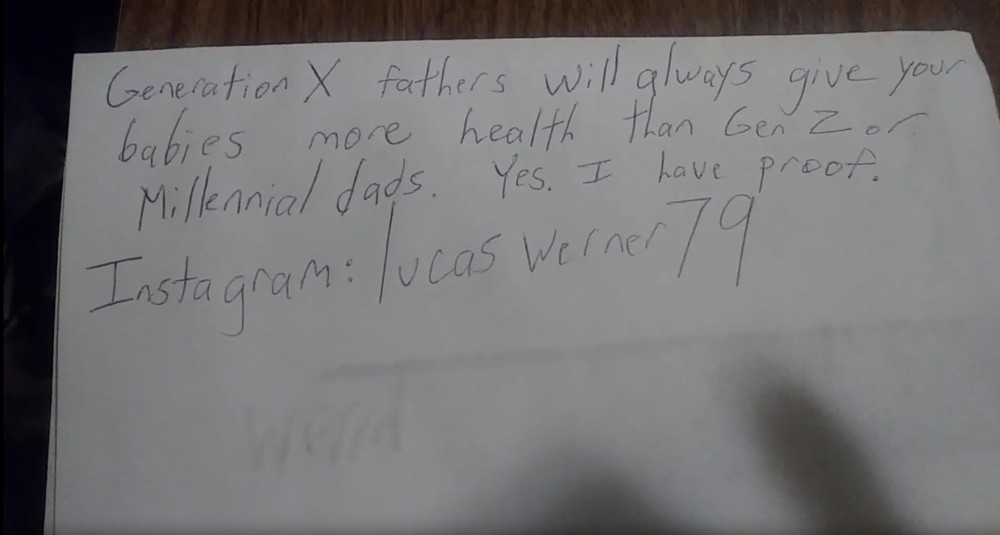 Generation X fathers will always give your
babies more health than Gen Z or
Millennial dads. Yes. I have proof.
Instagram: lucaswerner79